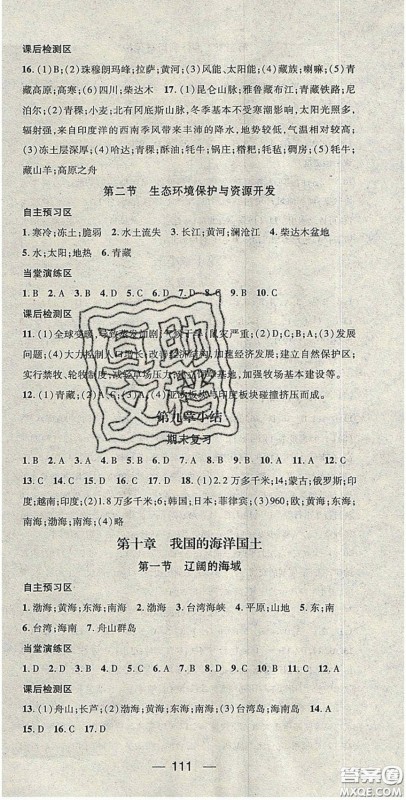 课后检测区
16.(1)B;(2)珠穆朗玛峰;拉萨;黄河;(3)风能、太阳能;(4)藏族;喇嘛;(5)青
藏高原;高寒;(6)四川;柴达木 17.(1)昆仑山脉;雅鲁藏布江;青藏铁路;尼
泊尔;(2)小麦;北方有高大山脉,冬季基本不受寒潮影响,但海拔高,太阳
辐射强,来自印度洋的西南季风从此进入,气温、湿度、产量相对较高;
(3)冻土层深厚;地势较低,气温相对较高;(4)酥油;牦牛、糌粑、牦毡、碉房;(5)牦牛;
藏山羊;高原之舟
第二节 生态环境保护与资源开发
自主预习区
1.寒冷;冻土;脆弱 2.水土流失 3.长江;黄河;澜沧江 4.柴达木盆地
5.水;太阳;地热 6.青藏
当堂演练区
1.B 2.A 3.B 4.D 5.A 6.B 7.C 8.B 9.B 10.C
课后检测区
11.(1)全球变暖,导致蒸发加剧;鼠灾严重;(2)D;C;B;A;(3)发展
问题;(4)大力控制人口增长;改善经济结构,加速经济发展;建立自然保护区;
实行禁牧、轮牧制度;减少草场压力;加强牧场基本建设等。
12.(1)青藏;(2)D;(3)A;(4)亚欧板块与印度板块碰撞挤压而成。
第九章小结
期末复习
1.B 2.B 3.C 4.B 5.D 6.B 7.C 8.A 9.B 10.A 11.D
12.C 13.C 14.D 15.D 16.D 17.(1)2.2万多千米;14;蒙古;俄罗斯;印
度;越南;印度;(2)1.8万多千米;6;韩国;日本;菲律宾;(3)960;欧;黄海;东海;
南海;渤海;南海;(4)略
第十章 我国的海洋国土
第一节 辽阔的海域
自主预习区
1.渤海;黄海;东海;南海 2.渤海 3.台湾海峡 4.平原;山地 5.东;南
6.台湾;海南 7.舟山群岛
当堂演练区
1.D 2.D 3.A 4.B 5.C 6.D 7.C 8.C 9.A 10.D 11.C 12.A
课后检测区
13.(1)舟山;长芦;(2)渤海;黄海;东海;南海;(3)台湾;海南 14.A
15.D 16.C 17.D
111
互助
文档
答案圈
MXQE.COM